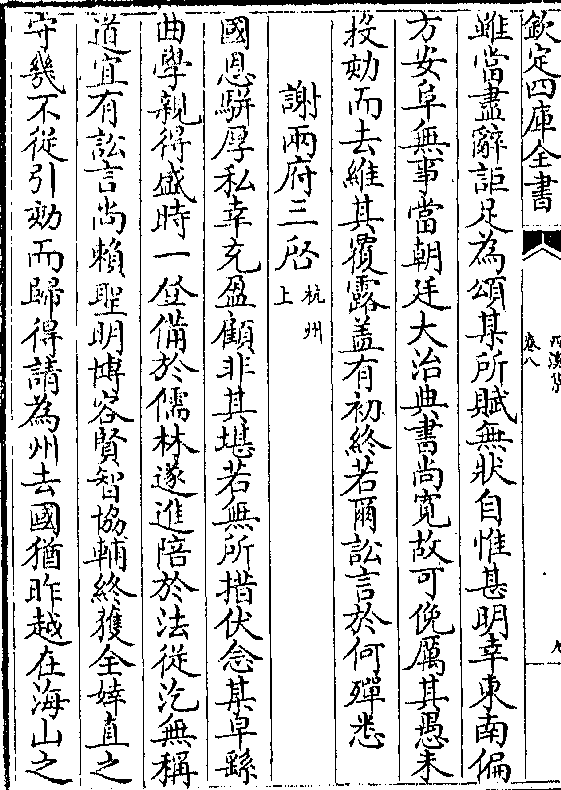 欽定四庫全書
西溪集
卷八
九
雖當盡辭詎足為頌某所賦無狀自惟甚明幸東南偏
方安阜無事當朝廷大治典書尚寬故可俛厲其愚未
投劾而去維其覆露蓋有初終若爾訟言於何殫悉
謝兩府三啟杭州上
國恩駢厚私幸充盈顧非其堪若無所措伏念某卓繇
曲學親得盛時一登備於儒林遂進陪於法從汔無稱
道宜有訟言尚賴聖明博容賢智協輔終獲全婞直之
守幾不從引劾而歸得請為州去國猶昨越在海山之